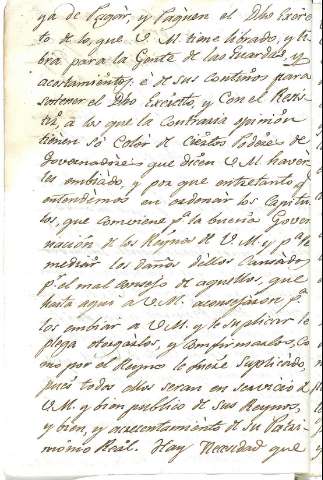 ga de Pagar, y Paguen el Dho Exerci
to de lo, que V M tiene librado, y li
bra para la Gente de las Guardas, y
acostamientos, è de sus continos para
sostener el Dho Exercito, y con el Resis
tir, à los que la Contraria opinion
tienen Só Color de ciertos Poderes de
Governadores que dicen V M haver
les embiado, y por que entretanto q.
entendemos en ordenar los Capitu
los, que conviene p.ª la buena Gover
nacion de los Reynos de V. M. y p.ª re
mediar los daños dellos Causados
p.r el mal consejo de aquellos, que
hasta aqui à V. M. aconsejaron p.ª
los embiar a V. M. y le suplicar le
plega otorgarlos, y Confirmarlos, Co
mo por el Reyno le fuese Suplicado,
pues todos ellos seran en servicio de
V. M. y bien publico de sus Reynos,
y bien, y acrecentamiento de su Patri
monio Real. Hay Necesidad que